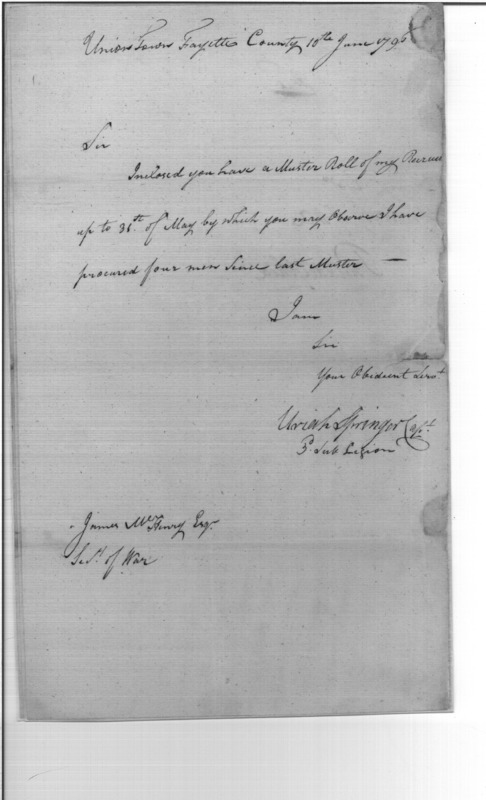 Union Town Fayette County 10th June 1796
Sir
Inclosed you have a Muster Roll of my Recruits
up to 31st of May by which you may Observe I have
procured four men Since last Muster —
I am
Sir
Your Obedient Servt
Uriah Springer Capt
3d Sub Legion
James McHenry Esqr
Secy of War